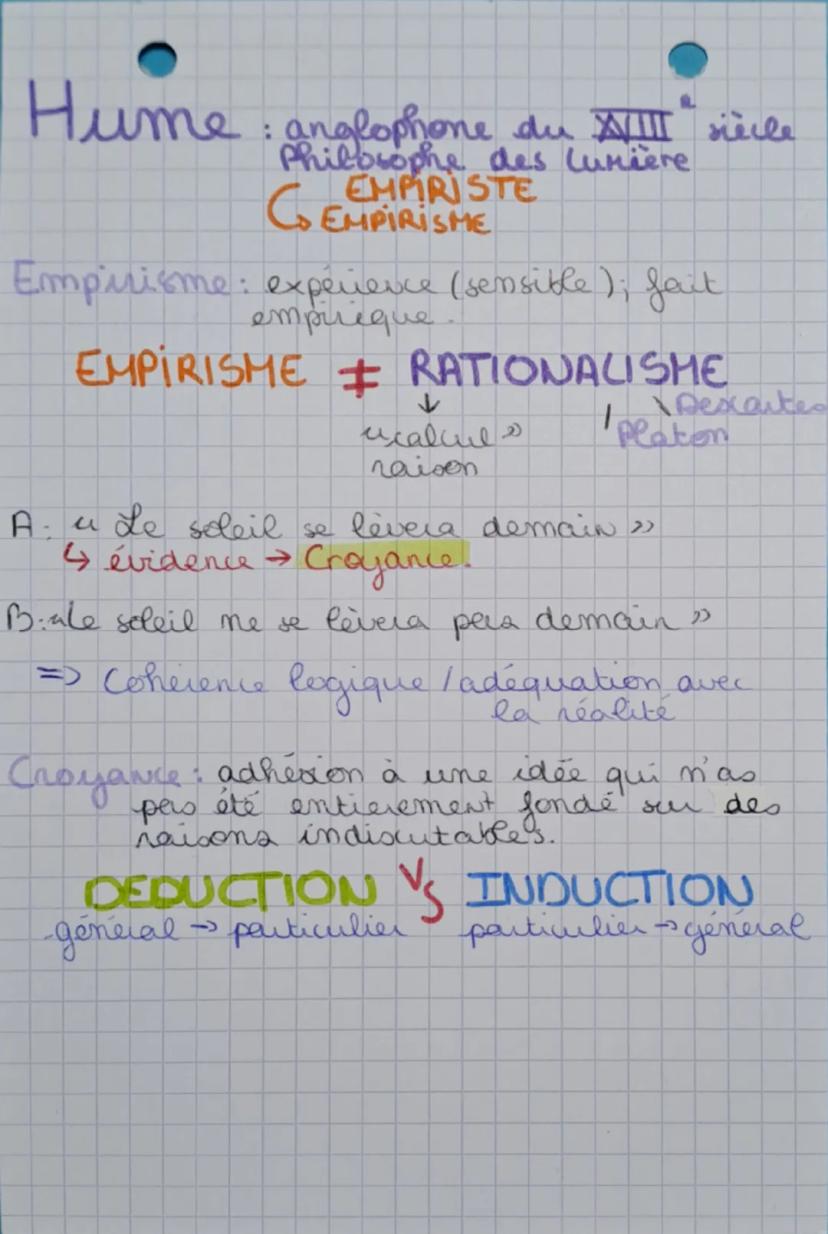 Hume : anglophone du XVIIIe siècle
Philosophe des Lumière
EMPIRISTE
↳ EMPIRISME
Empirisme : expérience (sensible) ; fait
empirique.
EMPIRISME ≠ RATIONALISME
↓ / \ Descartes
"calcul" Platon
raison
A : "Le soleil se lèvera demain"
↳ évidence → Croyance.
B : "Le soleil ne se lèvera pas demain"
=> Cohérence logique / adéquation avec
la réalité
Croyance : adhésion à une idée qui n'as
pas été entierement fondé sur des
raisons indiscutables.
DEDUCTION VS INDUCTION
général → particulier particulier → général